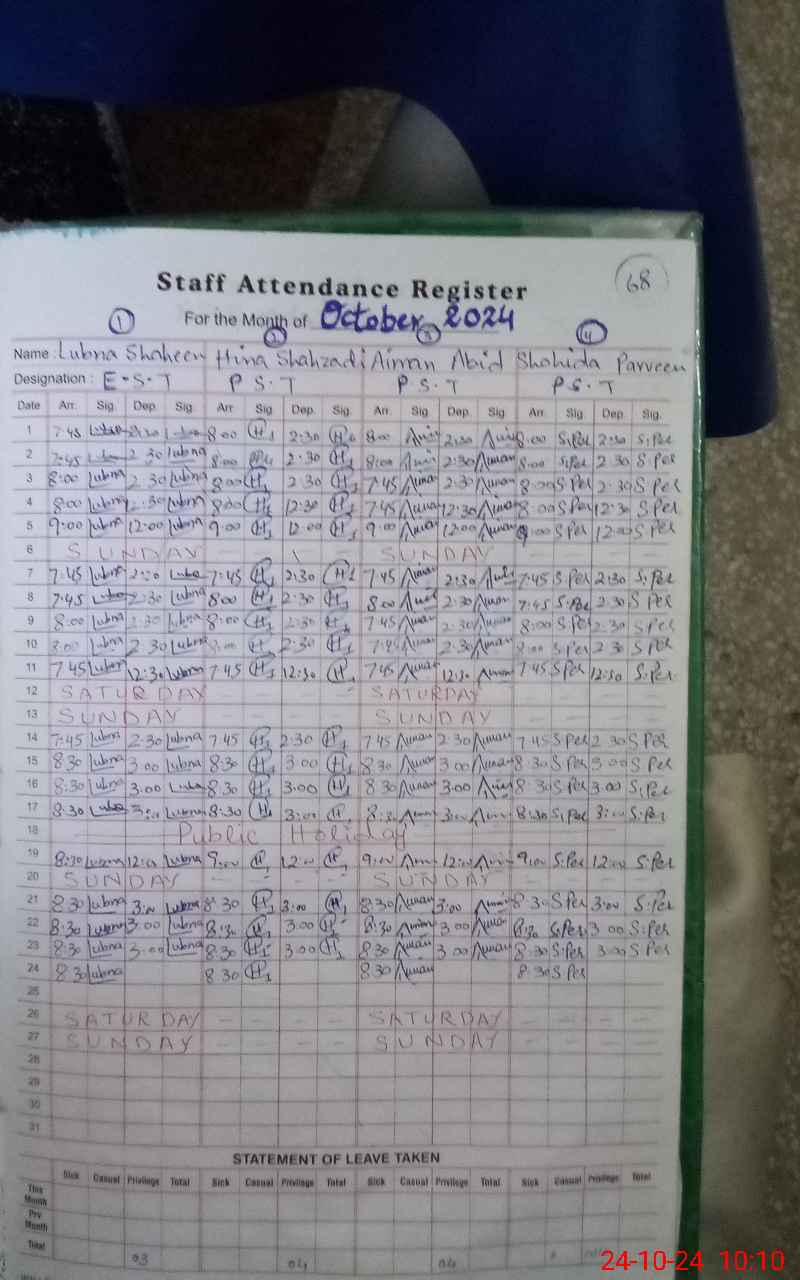 68
Staff Attendance Register
For the Month of October 2024
1 2 3 4
Name: Lubna Shaheen Hina Shahzadi Aiman Abid Shahida Parveen
Designation: E.S.T P S.T P S.T P S.T
Date Arr. Sig. Dep. Sig. Arr. Sig. Dep. Sig. Arr. Sig. Dep. Sig. Arr. Sig. Dep. Sig.
1 7:45 Lubna 2:30 Lubna 8:00 H 2:30 H 8:00 2:30 8:00 S.Per 2:30 S.Per
2 7:45 Lubna 2 30 Lubna 8:00 2:30 H 8:00 2:30 Aiman 8:00 S.Per 2 30 S.Per
3 8:00 Lubna 2 30 Lubna 8:00 H 2 30 H 7:45 Aiman 2:30 Aiman 8:00 S Per 2:30 S Per
4 8:00 Lubna 2:30 Lubna 8:00 H 12:30 H 7:45 Aiman 12:30 Aiman 8:00 S Per 12:30 S Per
5 9:00 Lubna 12:00 Lubna 9:00 H 12:00 H 9:00 Aiman 12:00 Aiman 9:00 S Per 12:00 S Per
6 SUNDAY SUNDAY
7 7:45 Lubna 2:30 Luba 7:45 H 2:30 H 7 45 Aiman 2:30 7:45 S.Per 2:30 S.Per
8 7:45 Lubna 2:30 Lubna 8:00 H 2:30 H 8:00 2:30 Aiman 7:45 S.Per 2:30 S Per
9 8:00 Lubna 2:30 Lubna 8:00 H 2:30 H 7:45 Aiman 2:30 Aiman 8:00 S Per 2:30 S Per
10 8:00 Lubna 2 30 Lubna 8:00 H 2:30 H 7:45 Aiman 2:30 Aiman 8:00 S Per 2 30 S Per
11 7 45 Lubna 12:30 Lubna 7 45 H 12:30 H 7:45 Aiman 12:30 Aiman 7:45 S Per 12:30 S.Per
12 SATURDAY SATURDAY
13 SUNDAY SUNDAY
14 7:45 Lubna 2:30 Lubna 7 45 H 2 30 H 7 45 Aiman 2 30 Aiman 7 45 S Per 2 30 S Per
15 8 30 Lubna 3 00 Lubna 8:30 H 3 00 H 8 30 Aiman 3 00 Aiman 8 30 S Per 3 00 S Per
16 8:30 Lubna 3:00 Lubna 8 30 H 3:00 H 8 30 Aiman 3:00 8 30 S Per 3 00 S.Per
17 8:30 Lubna 3:00 Lubna 8:30 H 3:00 H 8:30 Aiman 3:00 8:30 S.Per 3:00 S.Per
18 Public Holiday
19 8:30 Lubna 12:00 Lubna 9:00 H 12:00 H 9:00 12:00 9:00 S.Per 12:00 S.Per
20 SUNDAY SUNDAY
21 8 30 Lubna 3:00 Lubna 8 30 H 3:00 H 8:30 Aiman 3:00 8 30 S Per 3:00 S.Per
22 8:30 Lubna 3:00 Lubna 8:30 H 3 00 H 8:30 Aiman 3 00 Aiman 8:30 S.Per 3 00 S.Per
23 8:30 Lubna 3:00 Lubna 8:30 H 3 00 H 8 30 Aiman 3 00 Aiman 8:30 S.Per 3:00 S Per
24 8 30 Lubna 8 30 H 8 30 Aiman 8:30 S Per
25
26 SATURDAY SATURDAY
27 SUNDAY SUNDAY
28
29
30
31
STATEMENT OF LEAVE TAKEN
Sick Casual Privilege Total Sick Casual Privilege Total Sick Casual Privilege Total Sick Casual Privilege Total
This Month
Prv Month
Total 03 04 04
24-10-24 10:10